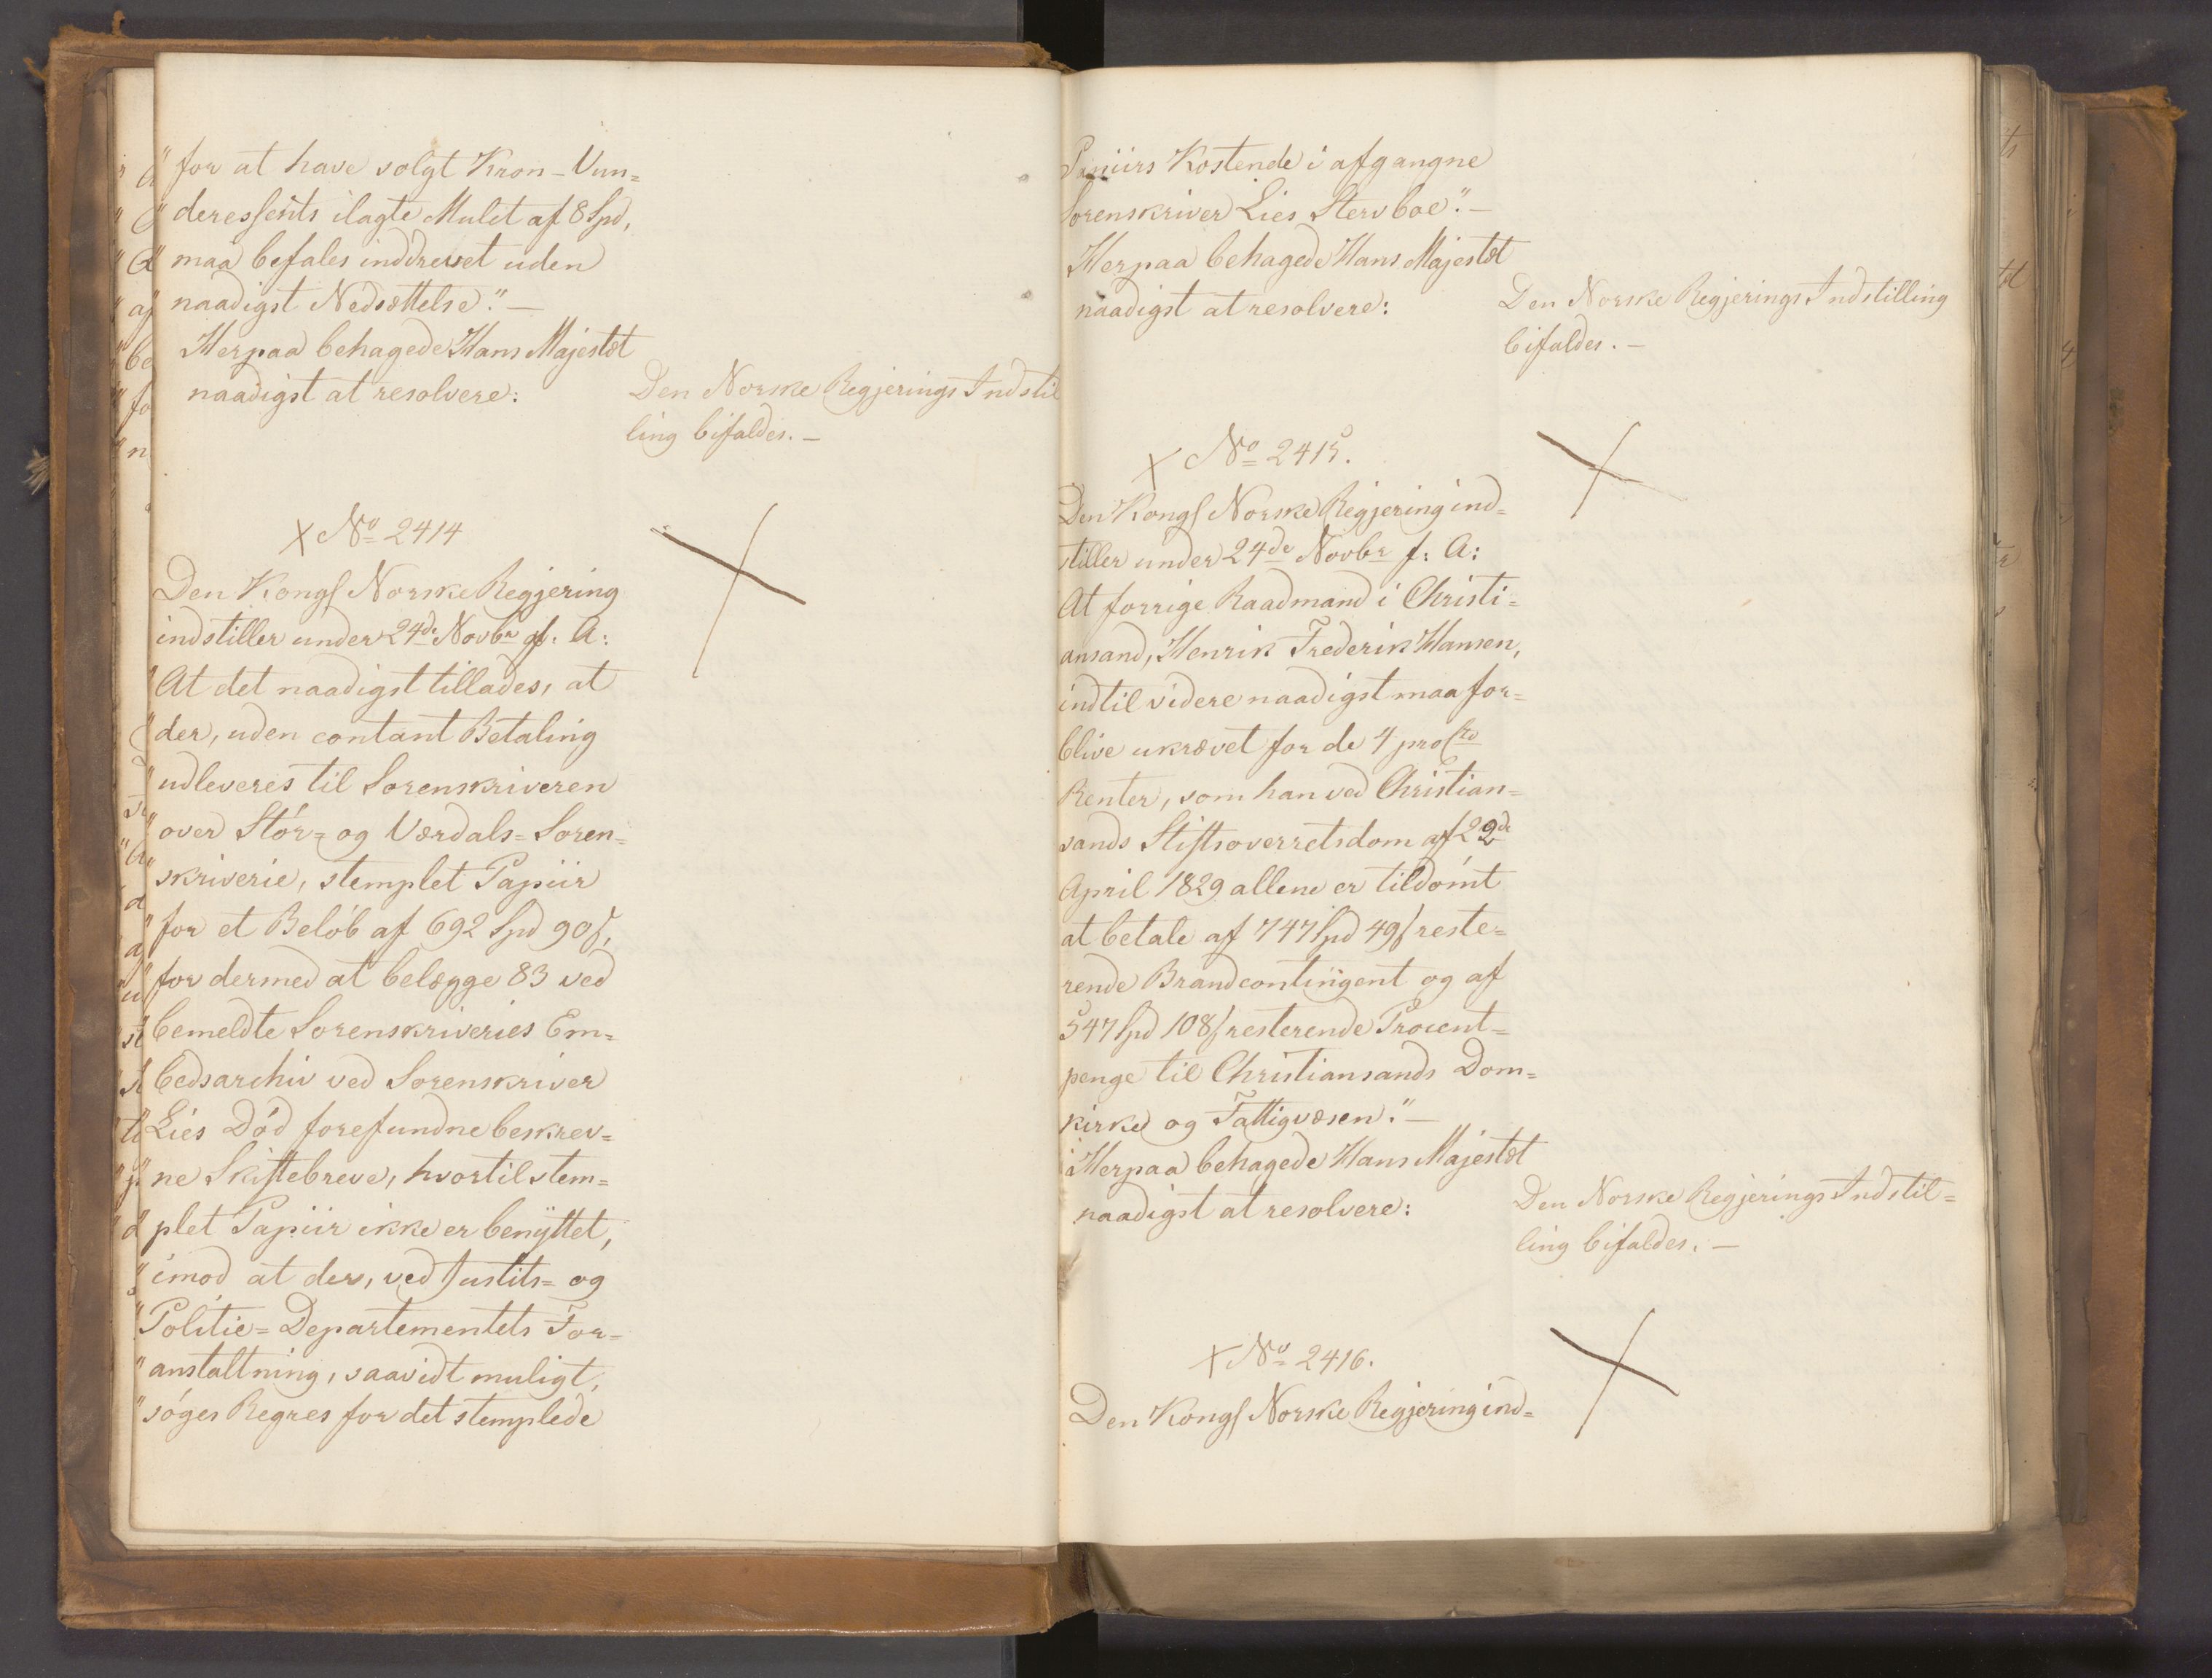 " for at have solgt Kron-Vun=
" deressents ilagte Mulct af 8 Spd,
" maa befales inddrevet uden
" naadigst Nedsættelse." —
Herpaa behagede Hans Majestæt
naadigst at resolvere:
Den Norske Regjerings Indstil
ling bifaldes. —
X No 2414
Den Kongl Norske Regjering
indstiller under 24de Novbr f: A:
" At det naadigst tillades, at
" der, uden contant Betaling
" udleveres til Sorenskriveren
" over Stór= og Værdals=Soren=
" skriverie, stemplet Papiir
" for et Belób af 692 Spd 90 s,
" for dermed at belægge 83 ved
" bemeldte Sorenskriveries Em=
" bedsarchiv ved Sorenskriver
" Lies Dód forefundne beskrev=
" ne Skiftebreve, hvortil stem=
" plet Papiir ikke er benyttet,
" imod at der, ved Justits= og
" Politie=Departementets For=
" anstaltning, saavidt muligt,
" sóges Regres for det stemplede
Papiirs Kostende i afgangne
Sorenskriver Lies Stervboe." —
Herpaa behagede Hans Majestæt
naadigst at resolvere:
Den Norske Regjerings Indstilling
bifaldes. —
X No 2415.
Den Kongl Norske Regjering ind=
stiller under 24de Novbr f: A:
At forrige Raadmand i Christi=
ansand, Henrik Frederik Hansen,
indtil videre naadigst maa for=
blive ukrævet for de 4 pro Cto
Renter, som han ved Christian=
sands Stiftsoverretsdom af 22de
April 1829 allene er tildómt
at betale af 747 Spd 49 s reste=
rende Brandcontingent og af
547 Spd 108 s resterende Procent=
penge til Christiansands Dom=
kirke og Fattigvæsen." —
Herpaa behagede Hans Majestæt
naadigst at resolvere:
Den Norske Regjerings Indstil=
ling bifaldes. —
X No 2416.
Den Kongl Norske Regjering ind=